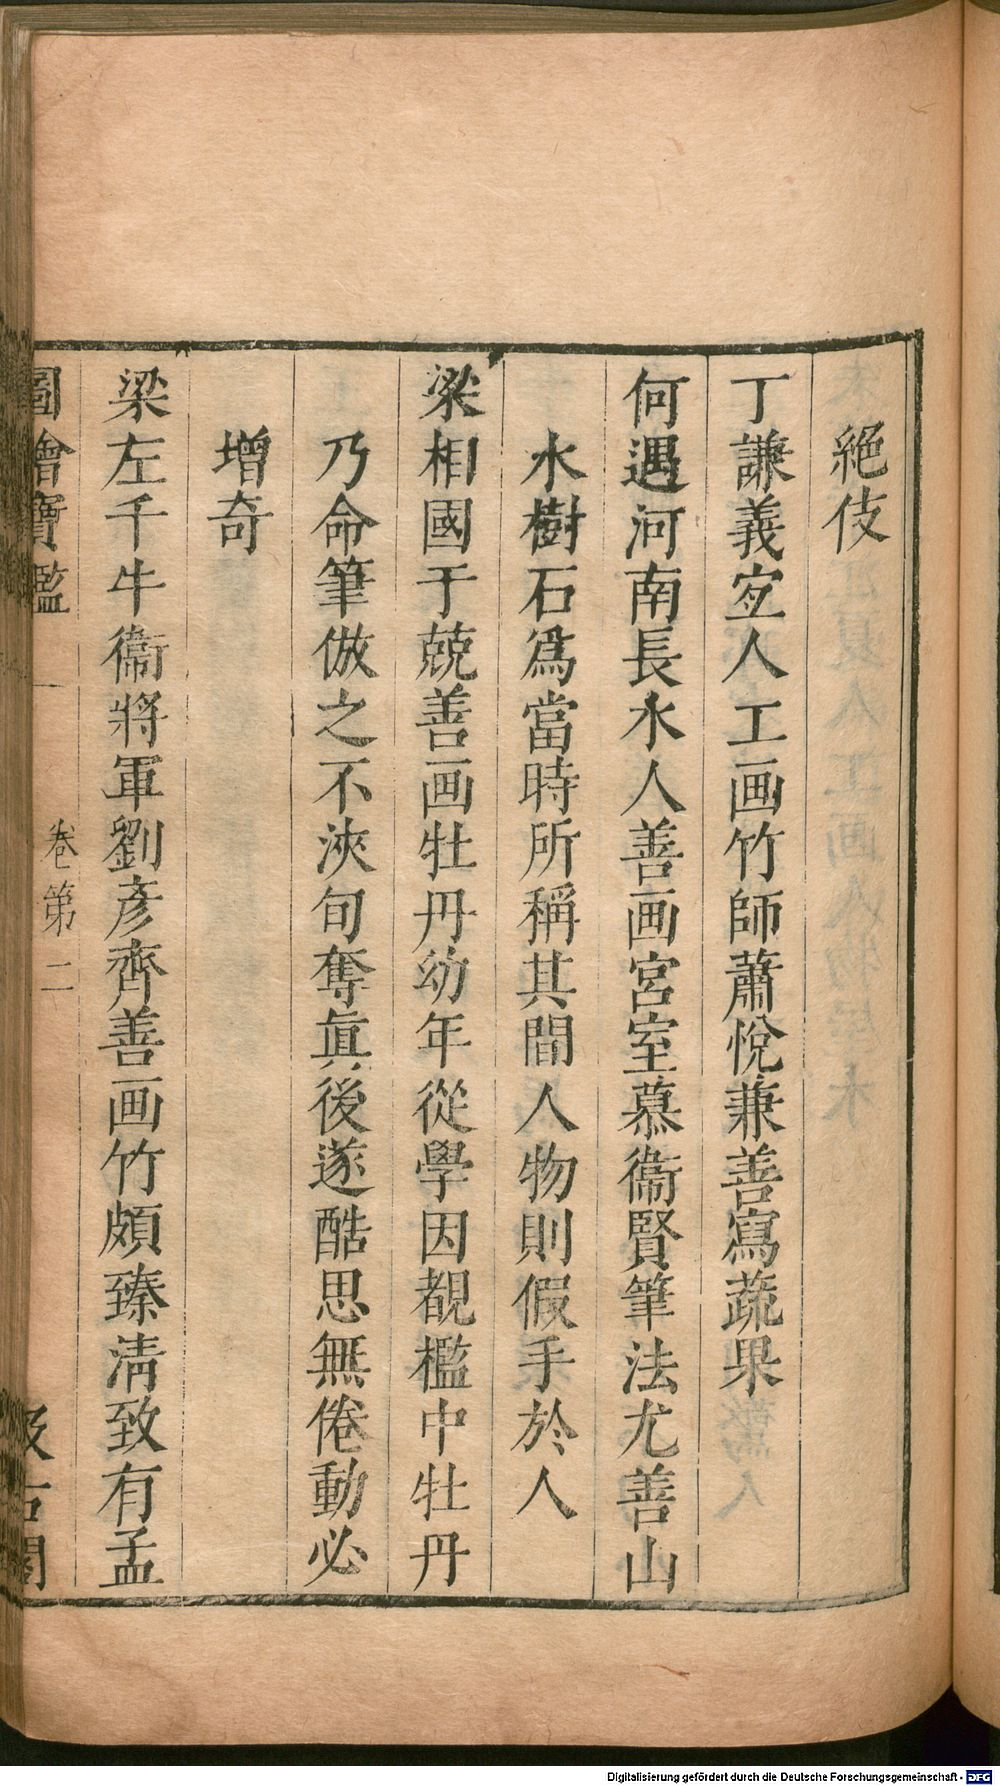 絕伎
丁謙義㝎人工画竹師蕭悅兼善寫蔬果
何遇河南長水人善画宮室慕衞賢筆法尤善山
水樹石爲當時所稱其間人物則假手於人
梁相國于兢善画牡丹幼年從學因覩檻中牡丹
乃命筆倣之不浹旬奪眞後遂酷思無倦動必
增奇
梁左千牛衞將軍劉彥齊善画竹頗臻淸致有孟
圖繪寶鑑
卷第二
汲古閣
Digitalisierung gefördert durch die Deutsche Forschungsgemeinschaft - DFG